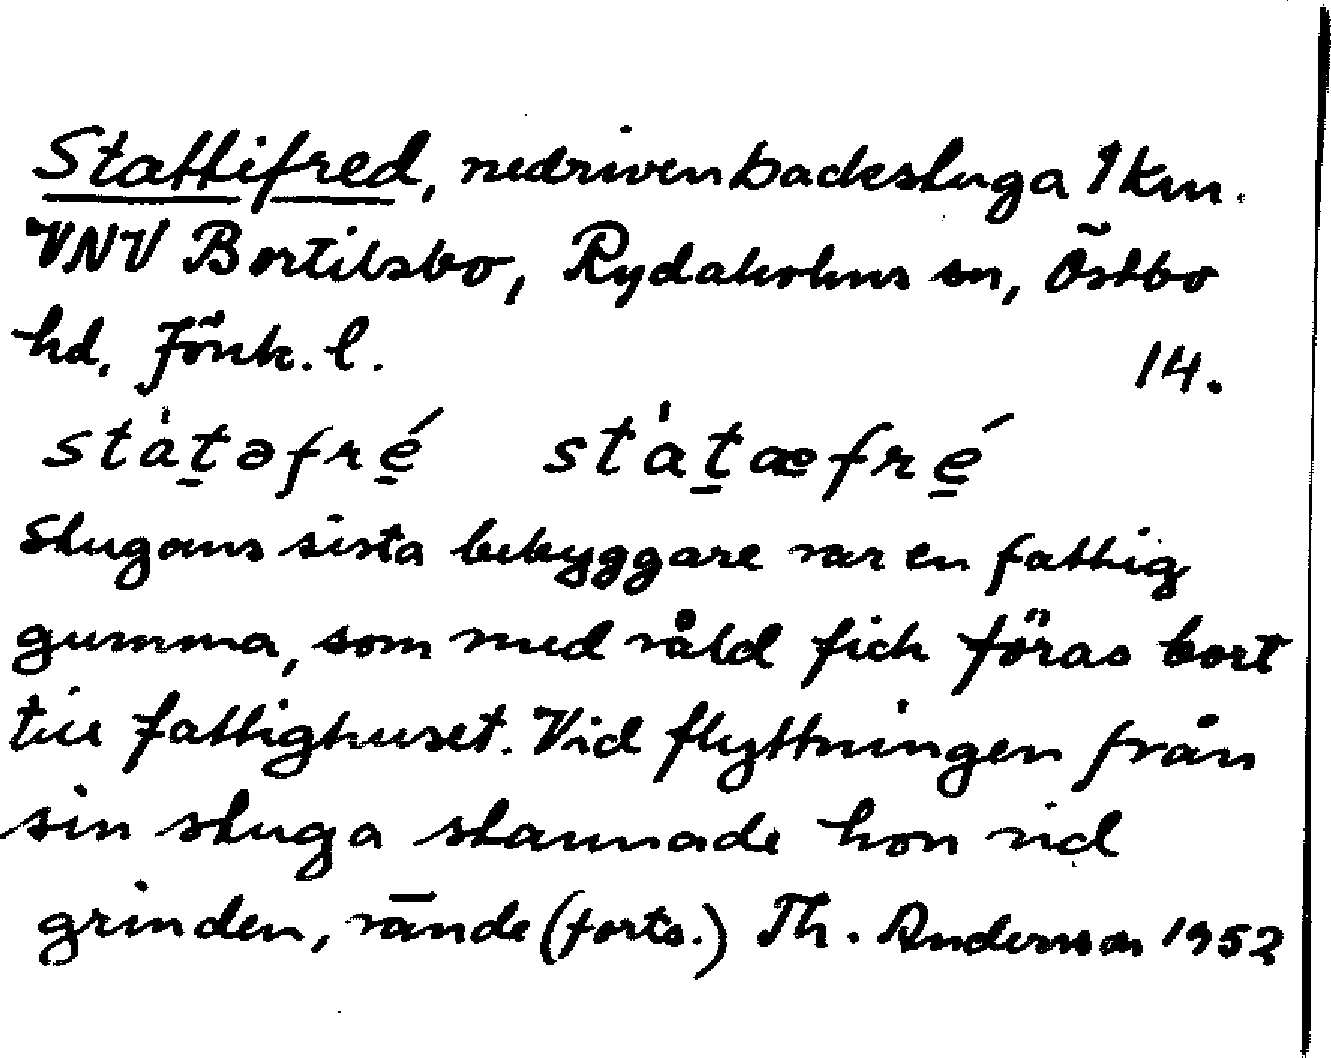 Stattifred, nedriven backstuga 1 km.
VNV Bortilsbo, Rydaholms sn, Östbo
hd, Jönk. l. 14.
stàt̲əfré̲ stàt̲æfré̲
Stugans sista bebyggare var en fattig
gumma, som med våld fick föras bort
till fattighuset. Vid flyttningen från
sin stuga stannade hon vid
grinden, vände (forts.) Th. Andersson 1952